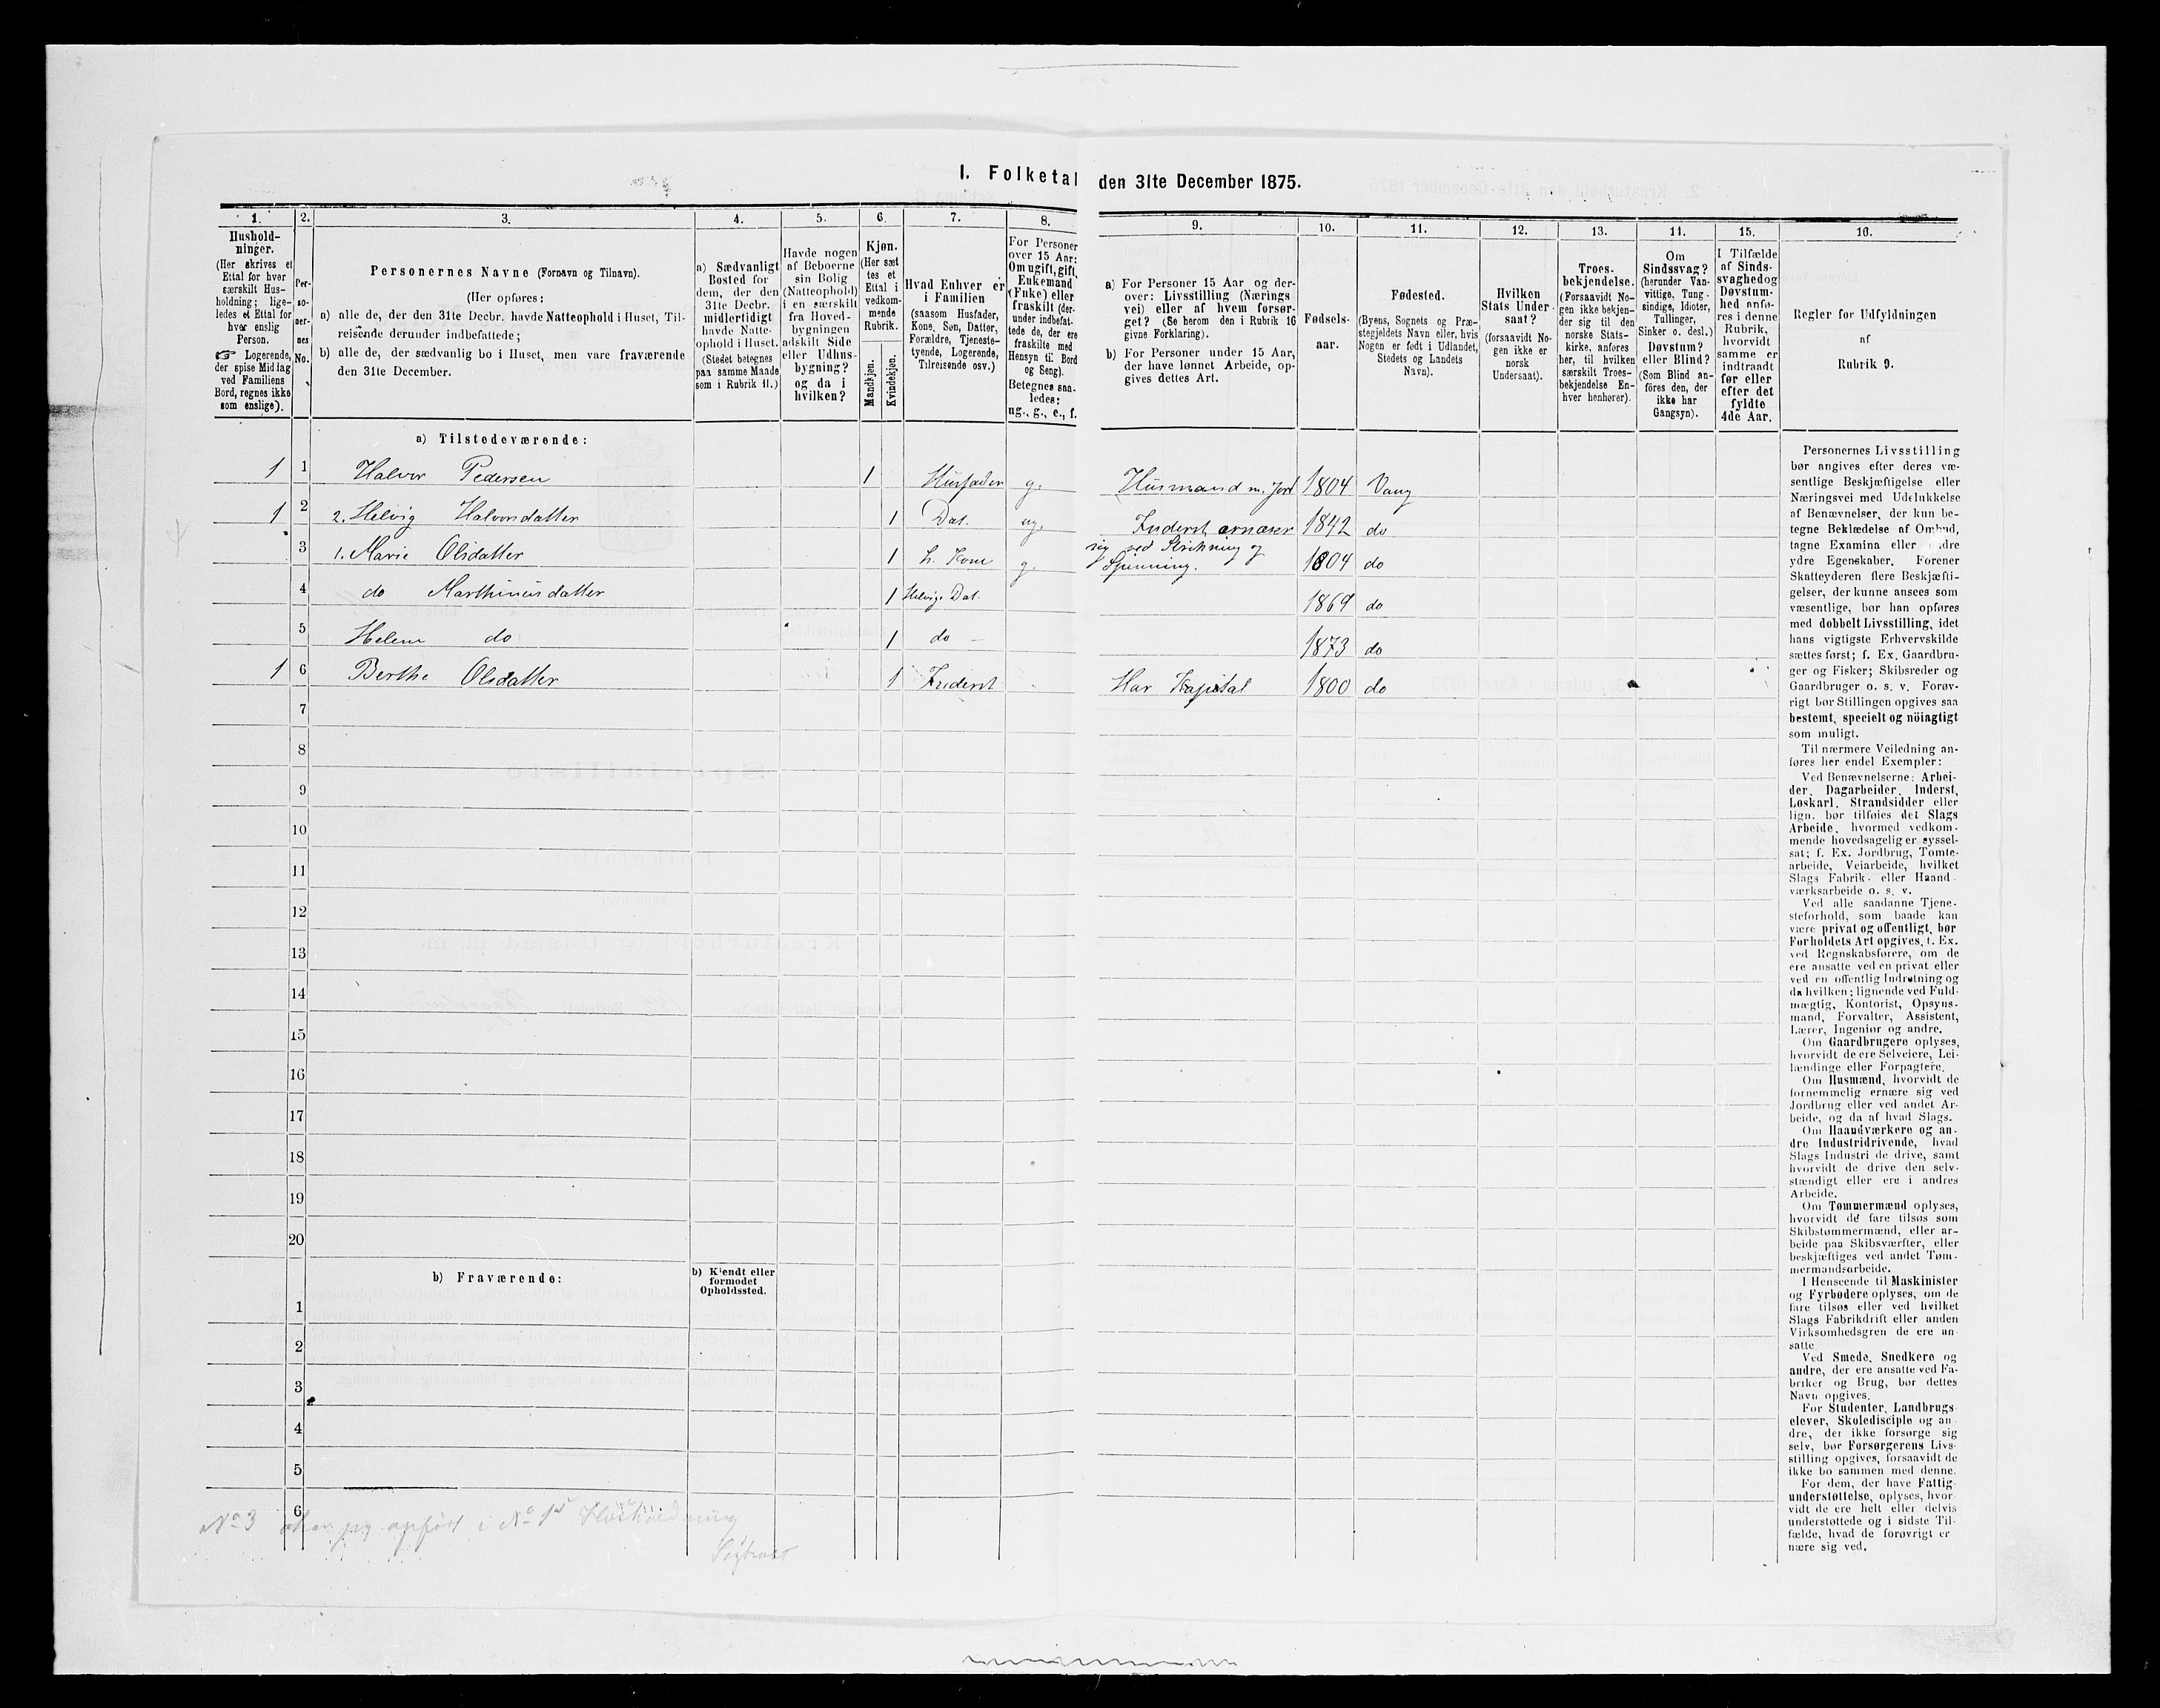 I. Folketal den 31te December 1875.
1.
Hushold-
ninger.
(Her skrives et
Ettal for hver
særskilt Hus-
holdning; lige-
ledes et Ettal for
hver enslig
Person.
☞ Logerende,
der spise Middag
ved Familiens
Bord, regnes ikke
som enslige).
2.
Per-
so-
ner-
nes
No.
3.
Personernes Navne (Fornavn og Tilnavn).
(Her opføres:
a) alle de, der den 31te Decbr. havde Natteophold i Huset, Til-
reisende derunder indbefattede;
b) alle de, der sædvanlig bo i Huset, men vare fraværende
den 31te December.
4.
a) Sædvanligt
Bosted for
dem, der den
31te Decbr.
midlertidigt
havde Natte-
ophold i Huset.
(Stedet betegnes
paa samme Maade
som i Rubrik 11.)
5.
Havde nogen
af Beboerne
sin Bolig
(Natteophold)
i en særskilt
fra Hoved-
bygningen
adskilt Side
eller Udhus-
bygning?
og da i
hvilken?
6.
Kjøn.
(Her sæt
tes et
Ettal i
vedkom-
mende
Rubrik.
Mandkjøn.
Kvindekjøn.
7.
Hvad Enhver er
i Familien
(saasom Husfader,
Kone, Søn, Datter,
Forældre, Tjeneste-
tyende, Logerende,
Tilreisende osv.)
8.
For Personer
over 15 Aar:
Om ugift, gift,
Enkemand
(Enke) eller
fraskilt (der-
under indbefat-
tede de, der ere
fraskilte med
Hensyn til Bord
og Seng).
Betegnes saa-
ledes:
ug., g., e., f.
9.
a) For Personer 15 Aar og der-
over: Livsstilling (Nærings
vei) eller af hvem forsør-
get? (Se herom den i Rubrik 16
givne Forklaring).
b) For Personer under 15 Aar,
der have lønnet Arbeide, op-
gives dettes Art.
10.
Fødsels-
aar.
11.
Fødested.
(Byens, Sognets og Præ-
stegjeldets Navn eller, hvis
Nogen er født i Udlandet,
Stedets og Landets
Navn).
12.
Hvilken
Stats Under-
saat?
(forsaavidt No-
gen ikke er
norsk
Undersaat).
13.
Troes-
bekjendelse.
(Forsaavidt No-
gen ikke bekjen-
der sig til den
norske Stats-
kirke, anføres
her, til hvilken
særskilt Troes-
bekjendelse En-
hver henhører).
11.
Om
Sindssvag?
(herunder Van-
vittige, Tung
sindige, Idioter,
Tullinger,
Sinker o. desl.)
Døvstum?
eller Blind?
(Som Blind an-
föres den, der
ikke har
Gangsyn).
15.
I Tilfælde
af Sinds-
svaghed og
Døvstum-
hed anfø-
res i denne
Rubrik,
hvorvidt
samme er
indtraadt
før eller
efter det
fyldte
4de Aar.
16.
Regler for Udfyldningen
af
Rubrik 9.
a) Tilstedeværende:
1 1 Halvor Pedersen 1 Husfader g. Husmand m. Jord 1804 Vang
1 2 2. Helvig Halvorsdatter 1 Dat. ug. Inderst ernærer 1842 do
sig ved Strikning og
3 1. Marie Olsdatter 1 h. Kone g. Spinning. 1804 do
4 do Marthinusdatter 1 Helvigs Dat. 1869 do
5 Helene do 1 do — 1873 do
1 6 Berthe Olsdatter 1 Inderst Har Kapital 1800 do
7
8
9
10
11
12
13
14
15
16
17
18
19
20
b) Fraværende:
b) Kjendt eller
formodet
Opholdssted.
1
2
3
4
5
6
No 3 opført i No 1s Husholdning
Personernes Livsstilling
bør angives efter deres væ-
sentlige Beskjæftigelse eller
Næringsvei med Udelukkelse
af Benævnelser, der kun be-
tegne Beklædelse af Ombud,
tagne Examina eller andre
ydre Egenskaber. Forener
Skatteyderen flere Beskjæfti-
gelser, der kunne ansees som
væsentlige, bør han opføres
med dobbelt Livsstilling, idet
hans vigtigste Erhvervskilde
sættes først; f. Ex. Gaardbru-
ger og Fisker; Skibsreder og
Gaardbruger o. s. v. Forøv-
rigt bør Stillingen opgives saa
bestemt, specielt og nöiagtigt
som muligt.
Til nærmere Veiledning an-
føres her endel Exempler:
Ved Benævnelserne: Arbei-
der, Dagarbeider, Inderst,
Løskarl, Strandsidder eller
lign. bør tilføies det Slags
Arbeide, hvormed vedkom-
mende hovedsagelig er syssel-
sat; f. Ex. Jordbrug, Tomte-
arbeide, Veiarbeide, hvilket
Slags Fabrik- eller Haand-
værksarbeide o. s. v.
Ved alle saadanne Tjene-
steforhold, som baade kan
være privat og offentligt, bør
Forholdets Art opgives, f. Ex.
ved Regnskabsførere, om de
ere ansatte ved en privat eller
ved en offentlig Indretning og
da hvilken; lignende ved Fuld-
mægtig, Kontorist, Opsyns-
mand, Forvalter, Assistent,
Lærer, Ingeniør og andre.
Om Gaardbrugere oplyses,
hvorvidt de ere Selveiere, Lei-
lændinge eller Forpagtere.
Om Husmænd, hvorvidt de
fornemmelig ernære sig ved
Jordbrug eller ved andet Ar-
beide, og da af hvad Slags.
Om Haandværkere og an-
dre Industridrivende, hvad
Slags Industri de drive, samt
hvorvidt de drive den selv-
stændigt eller ere i andres
Arbeide.
Om Tømmermænd oplyses,
hvorvidt de fare tilsøs som
Skibstømmermænd, eller ar-
beide paa Skibsværfter, eller
beskjæftiges ved andet Tøm-
mermandsarbeide.
I Henseende til Maskinister
og Fyrbødere oplyses, om de
fare tilsøs eller ved hvilket
Slags Fabrikdrift eller anden
Virksomhedsgren de ere an-
satte.
Ved Smede, Snedkere og
andre, der ere ansatte ved Fa-
briker og Brug, bør dettes
Navn opgives.
For Studenter, Landbrugs-
elever, Skoledisciple og an-
dre, der ikke forsørge sig
selv, bør Forsørgerens Livs-
stilling opgives, forsaavidt de
ikke bo sammen med denne.
For dem, der have Fattig-
understøttelse, oplyses, hvor-
vidt de ere helt eller delvis
understøttede og i sidste Til-
fælde, hvad de forøvrigt er
nære sig ved.